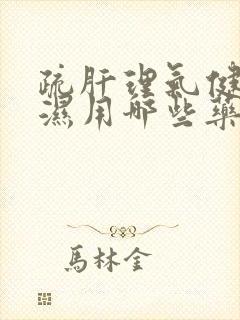 疏肝理气健
濕用哪些藥
馬林金